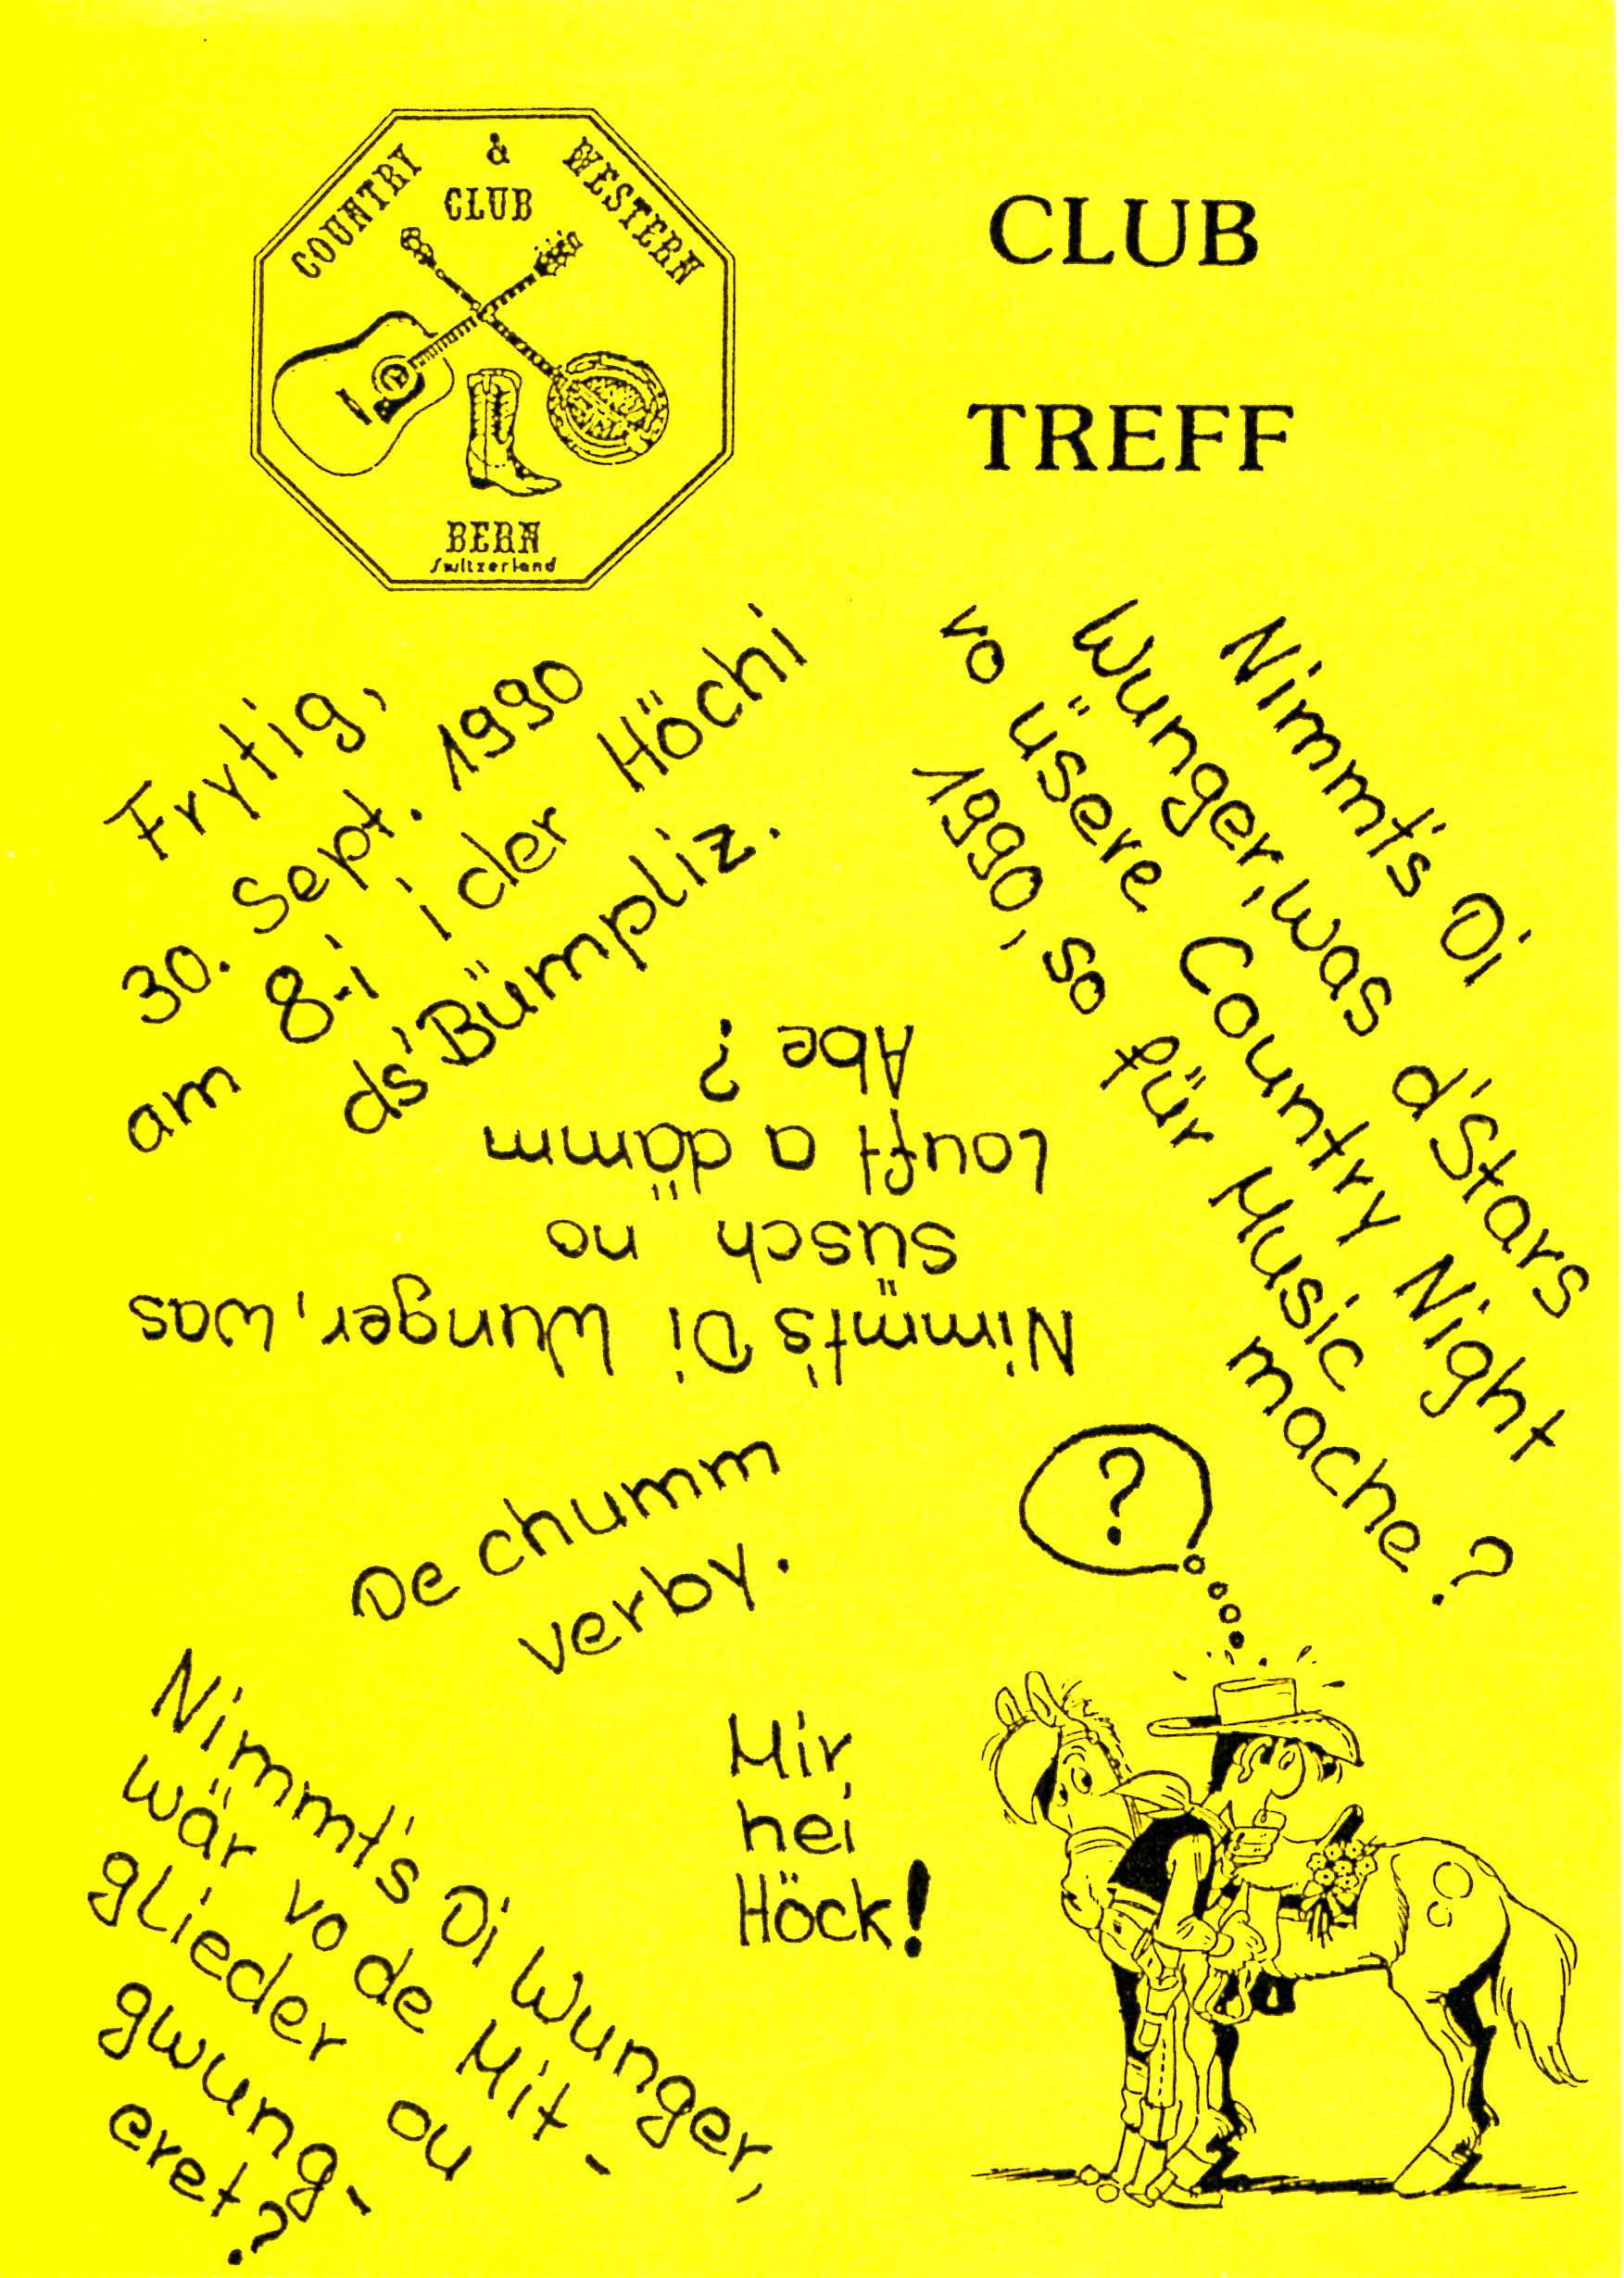 COUNTRY & WESTERN
CLUB
BERN
Switzerland
CLUB
TREFF
Frytig,
30. Sept. 1990
am 8-i i der Höchi
ds'Bümpliz.
Nimmt's Di
Wunger, was d'Stars
vo üsere Country Night
1990, so für Music
mache?
Nimmt's Di Wunger, was
süsch no
louft a dämm
Abe?
De chumm
verby.
?
Nimmt's Di Wunger,
wär vo de Mit-
glieder ou
gwung-
eret?
Mir
hei
Höck!